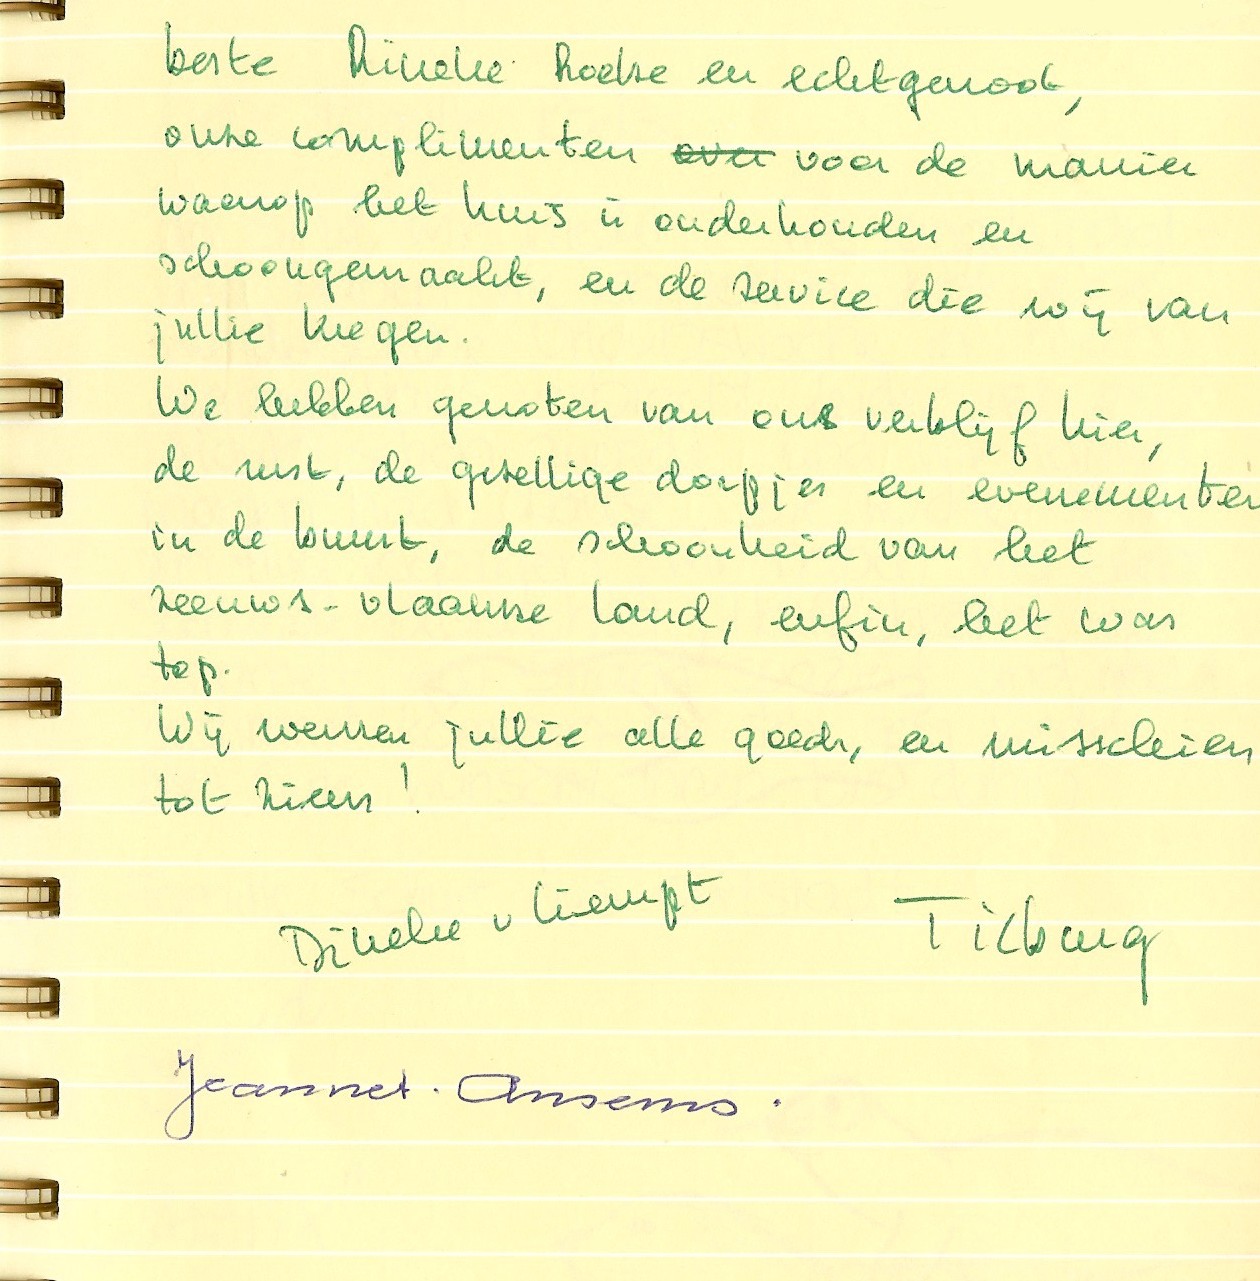 beste Rineke Roelse en echtgenoot,
onze complimenten ~~over~~ voor de manier
waarop het huis is onderhouden en
schoongemaakt, en de service die wij van
jullie kregen.
We hebben genoten van ons verblijf hier,
de rust, de gezellige dorpjes en evenementen
in de buurt, de schoonheid van het
zeeuws-vlaamse land, enfin, het was
top.
Wij wensen jullie alle goeds, en misschien
tot ziens!
Dineke v Liempt
Tilburg
Jeannet. Ansems.